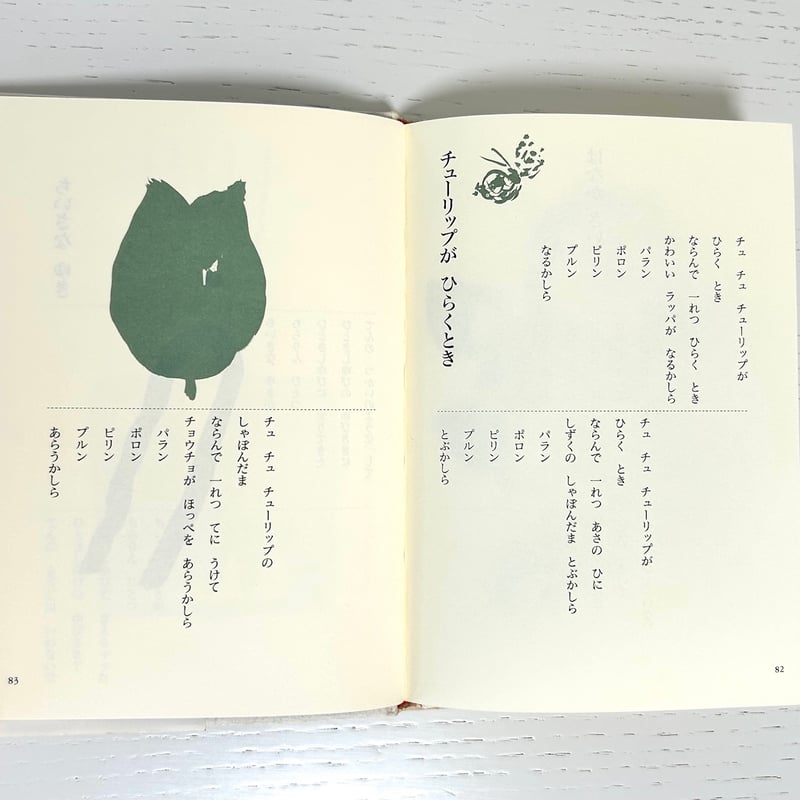 チューリップが ひらくとき
チュ チュ チューリップが
ひらく とき
ならんで 一れつ ひらく とき
かわいい ラッパが なるかしら
パラン
ポロン
ピリン
プルン
なるかしら
チュ チュ チューリップが
ひらく とき
ならんで 一れつ あさの ひに
しずくの しゃぼんだま とぶかしら
パラン
ポロン
ピリン
プルン
とぶかしら
82
チュ チュ チューリップの
しゃぼんだま
ならんで 一れつ てに うけて
チョウチョが ほっぺを あらうかしら
パラン
ポロン
ピリン
プルン
あらうかしら
83